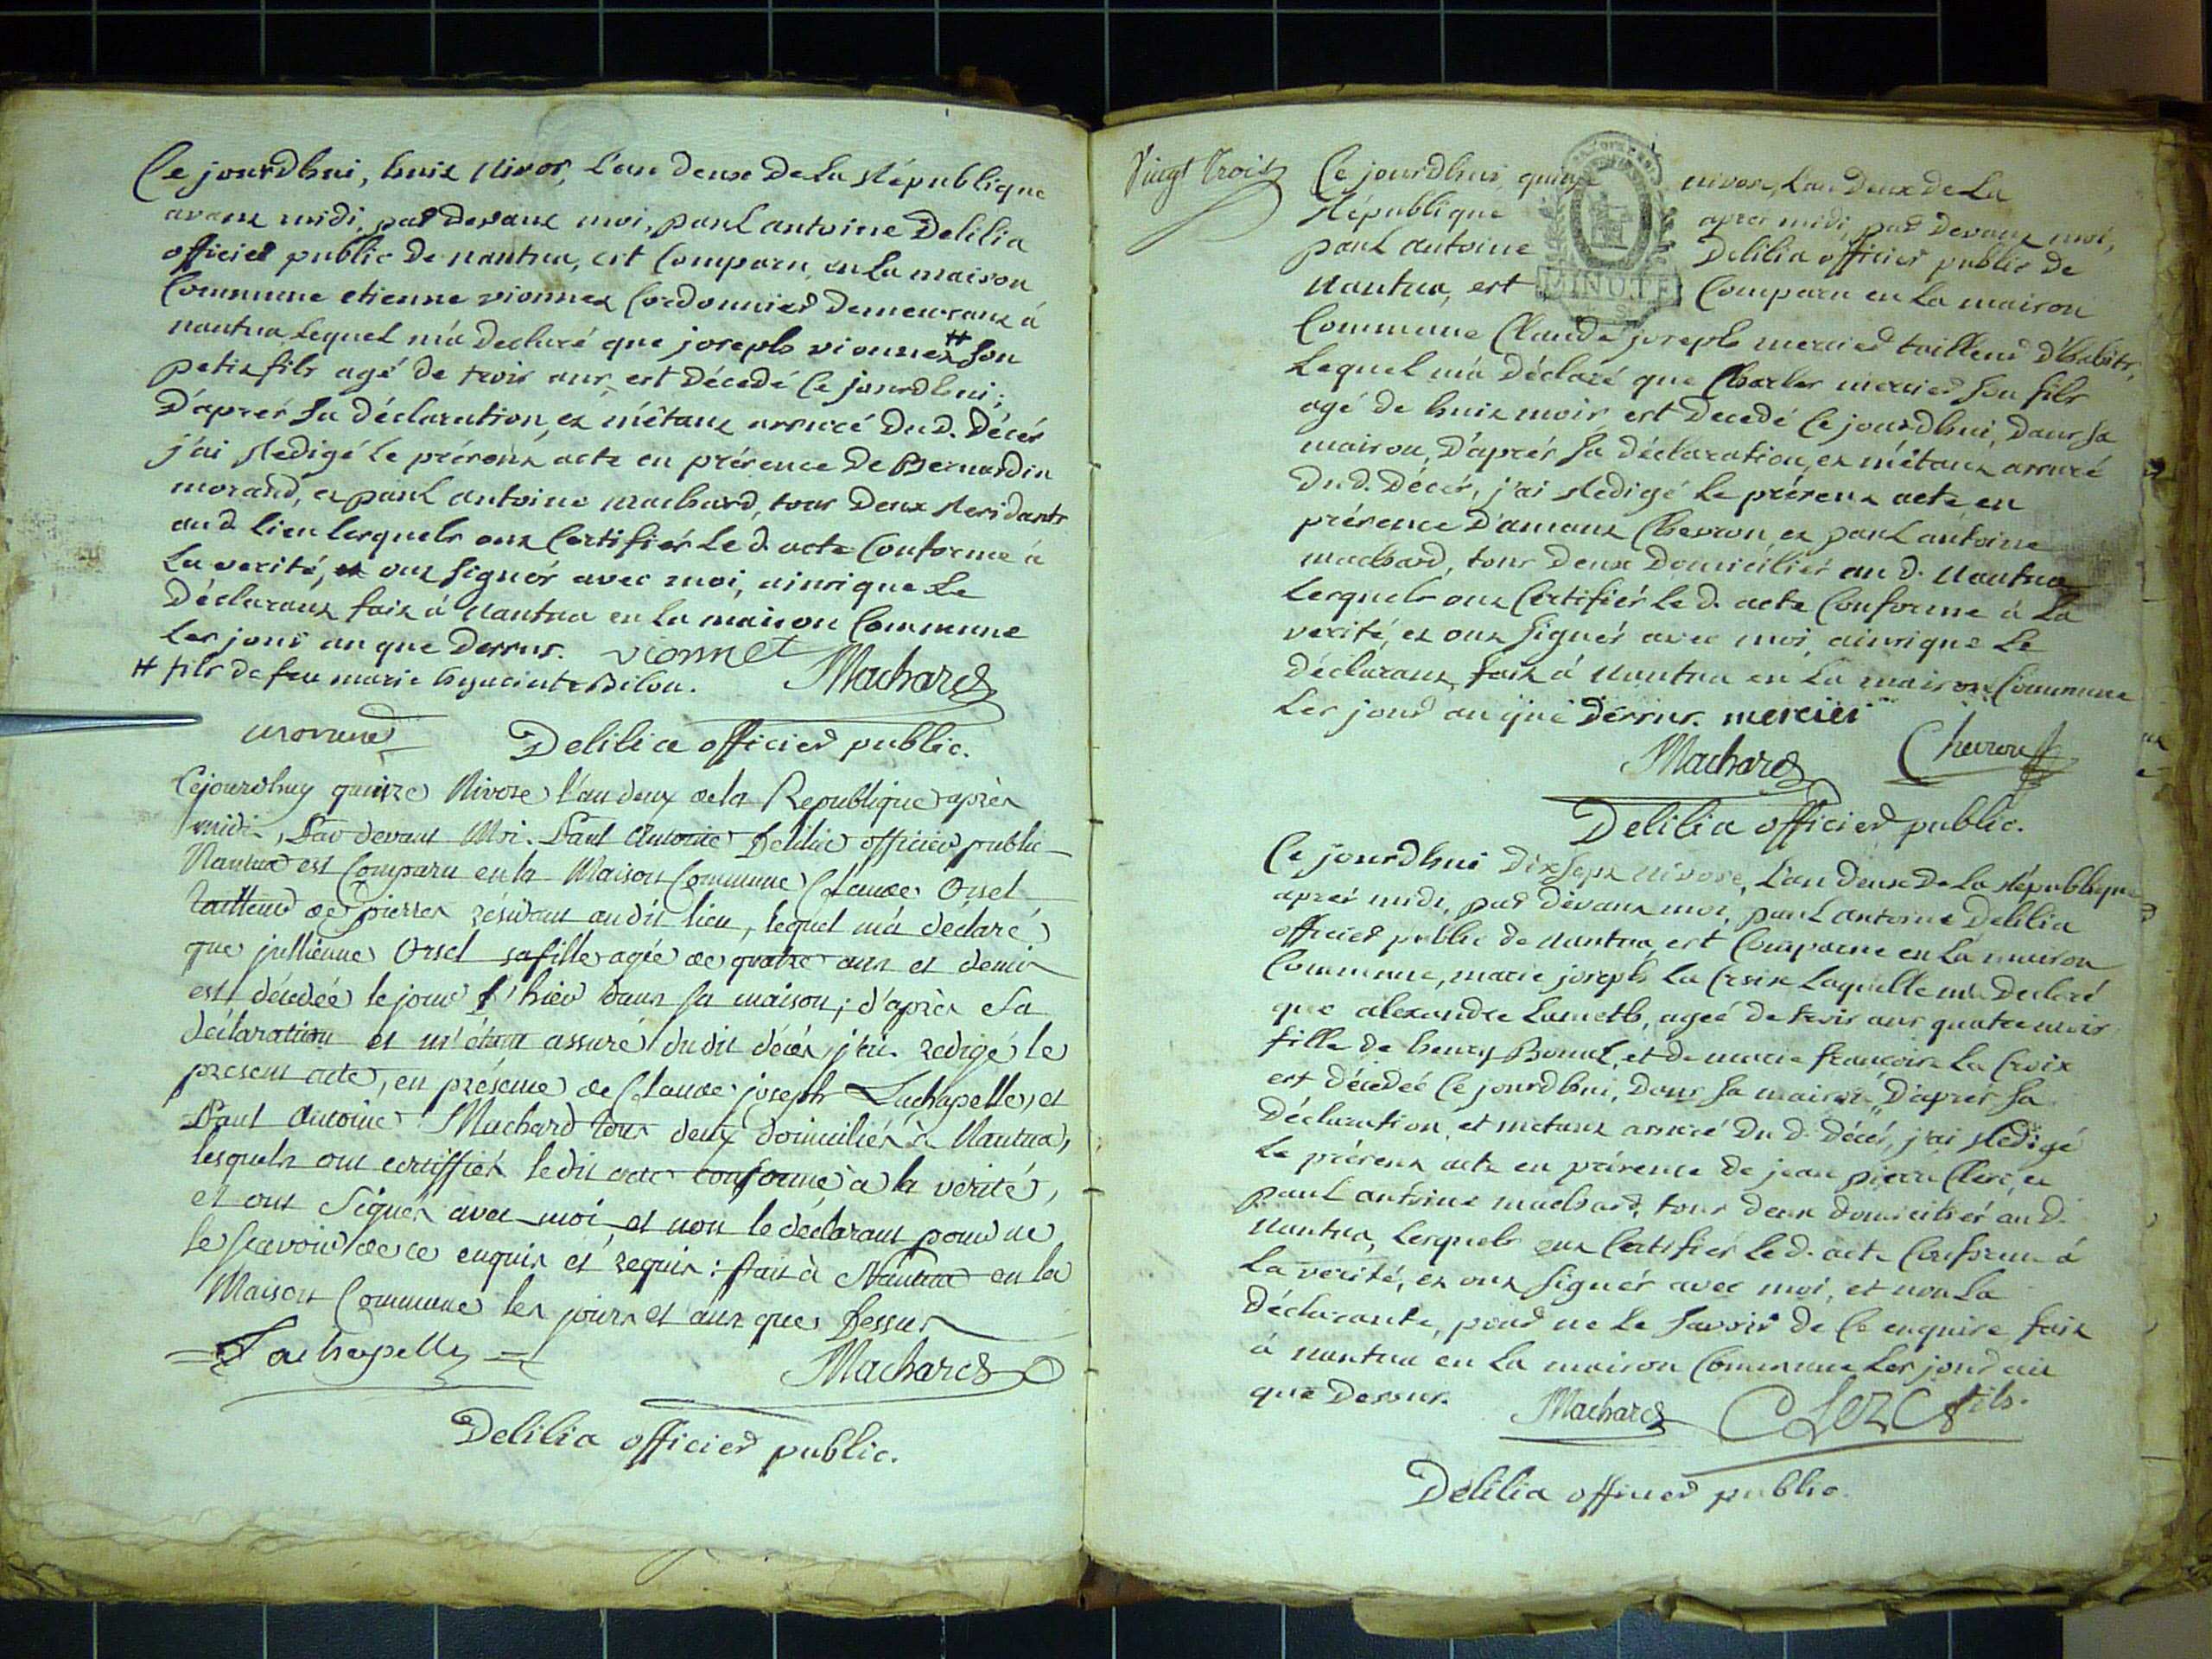 Ce jourdhui, huit Nivos, l'an deux de la République
avant midi, par devant moi, paul antoine Delilia
officier public de nantua, est Comparu, en la maison
Commune etienne vionnet Cordonnier demeurant à
nantua lequel m'a declaré que joseph vionnet # son
petit fils agé de trois ans, est décedé Ce jourdhui;
D'aprés sa déclaration, et m'étant assuré du d. décés
j'ai Redigé le présent acte en présence de Bernardin
morand, et paul antoine machard, tous deux Residants
au d. lieu lesquels ont Certifiés le d. acte Conforme à
La verité, et ont signés avec moi, ainsi que le
Déclarant fait à Nantua en la maison Commune
les jour an que dessus. vionnet Machard
# fils de feu marie hyacinte Bilon.
morand Delilia officier public.
Cejourdhuy quinze Nivose l'an deux de la Republique après
midi, Par devant Moi. Paul Antoine Delilia officier public
Nantua est Comparu en la Maison Commune Claude Orsel
tailleur de pierres résidant audit lieu, lequel m'a declaré
que jullienne Orsel sa fille agée de quatre ans et demis
est décedée le jour d'hier dans sa maison; d'après sa
déclaration et m'étant assuré dudit décés j'ai redigé le
present acte, en présence de Claude joseph Lachapelle, et
Paul Antoine Machard tous deux domiciliés à Nantua,
lesquels ont certiffiés ledit acte conforme à la verité,
et ont Signés avec moi, et non le déclarant pour ne
le sçavoir de ce enquis et requis: fait à Nantua en la
Maison Commune les jours et ans que dessus
Lachapelle Machard
Delilia officier public.
Vingt trois
Ce jourdhui, quinze nivose, l'an deux de la
République apres midi, par devant moi,
paul antoine Delilia officier public de
Nantua, est Comparu en la maison
MINUTE
Commune Claude joseph mercier tailleur d'habits,
Lequel m'a déclaré que Charles mercier son fils
agé de huit mois est decedé Ce jourdhui, dans sa
maison, D'aprés sa déclaration, et m'étant assuré
du d. Décés, j'ai Redigé le présent acte en
présence d'amant Chevron, et paul antoine
machard, tous deux Domiciliés au d. Nantua
Lesquels ont Certifiés le d. acte Conforme à la
verité, et ont signés avec moi, ainsi que le
déclarant, fait à Nantua en la maison Commune
les jour an que dessus. mercier
Machard Chevron
Delilia officier public.
Ce jourdhui dix sept nivose, l'an deux de la République
aprés midi, par devant moi, paul antoine Delilia
officier public de Nantua, est Comparue en la maison
Commune, marie joseph La Croix Laquelle m'a declaré
que alexandre Lameth, agée de trois ans quatre mois
fille de henry Bonnet, et de marie francoise La Croix
est décedeé Ce jourdhui, dans sa maison, D'aprés sa
Déclaration, et métant assuré du d. décés, j'ai Redigé
Le présent acte en présence de jean pierre Clerc, et
paul antoine machard, tous deux domiciliés au d.
Nantua, lesquels ont Certifiés le d. acte Conforme à
La verité, et ont signés avec moi, et non la
déclarante, pour ne le savoir de Ce enquise, fait
à nantua en la maison Commune les jour an
que dessus. Machard CLERC fils.
Delilia officier public.